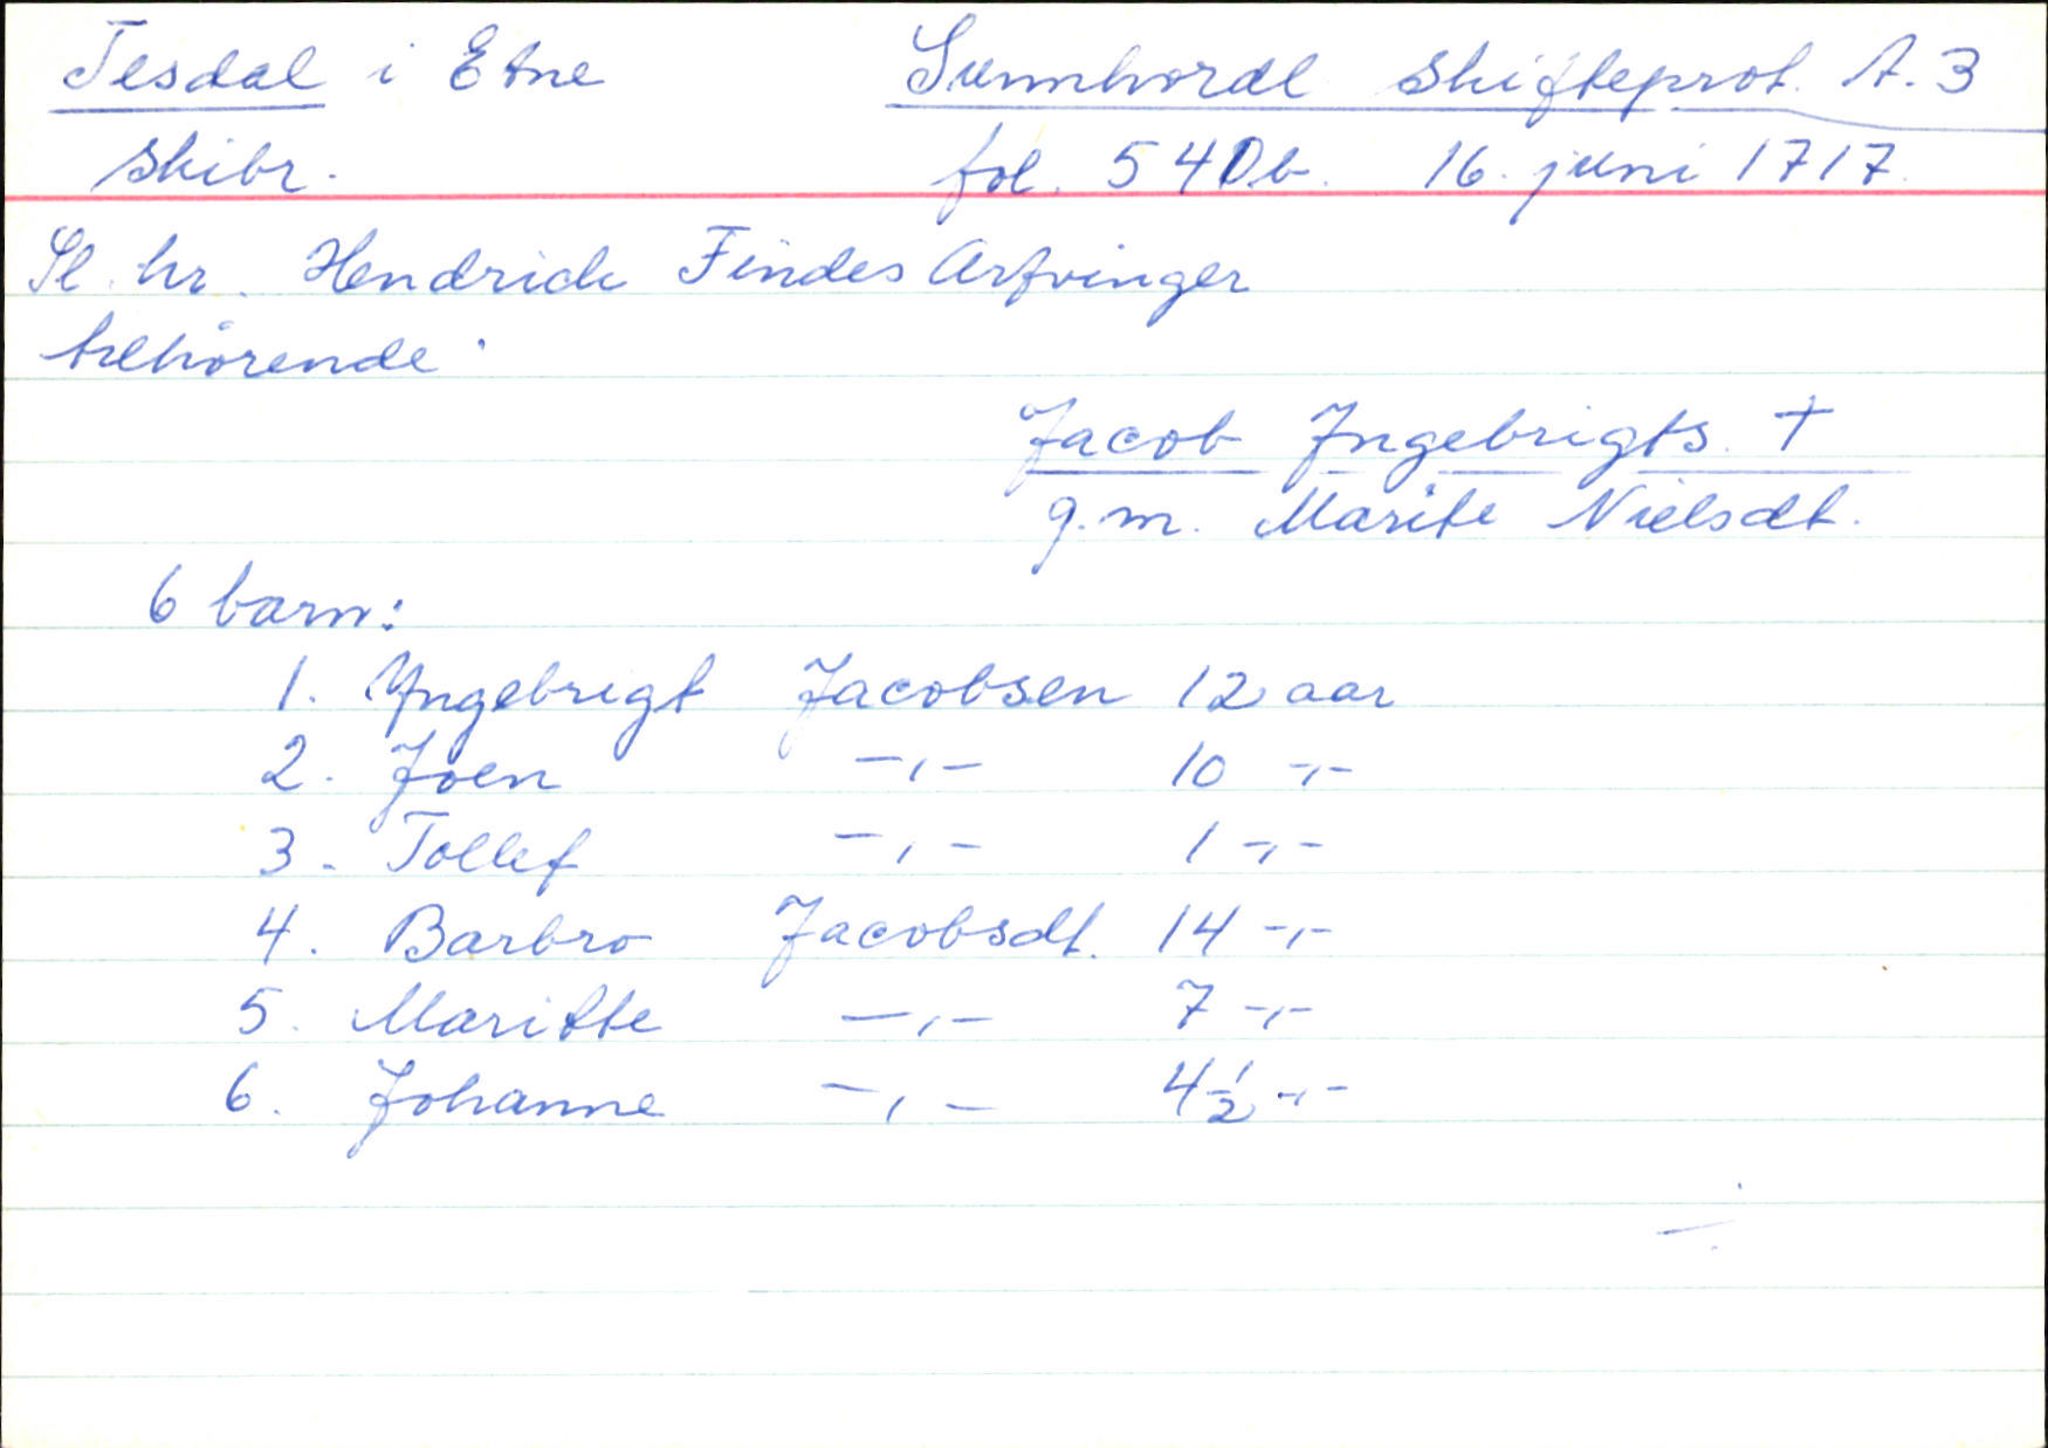 Tesdal i Etne Sunnhordl skifteprot. A. 3
Skibr. fol. 540b. 16. juni 1717.
Sl. hr. Hendrich Findes Arfvinger
tilhørende.
Jacob Ingebrigts. †
g.m. Marite Nielsdt.
6 barn:
1. Yngebrigt Jacobsen 12 aar
2. Joen -,- 10 -,-
3. Tollef -,- 1 -,-
4. Barbro Jacobsdt. 14 -,-
5. Maritte -,- 7 -,-
6. Johanne -,- 4½ -,-